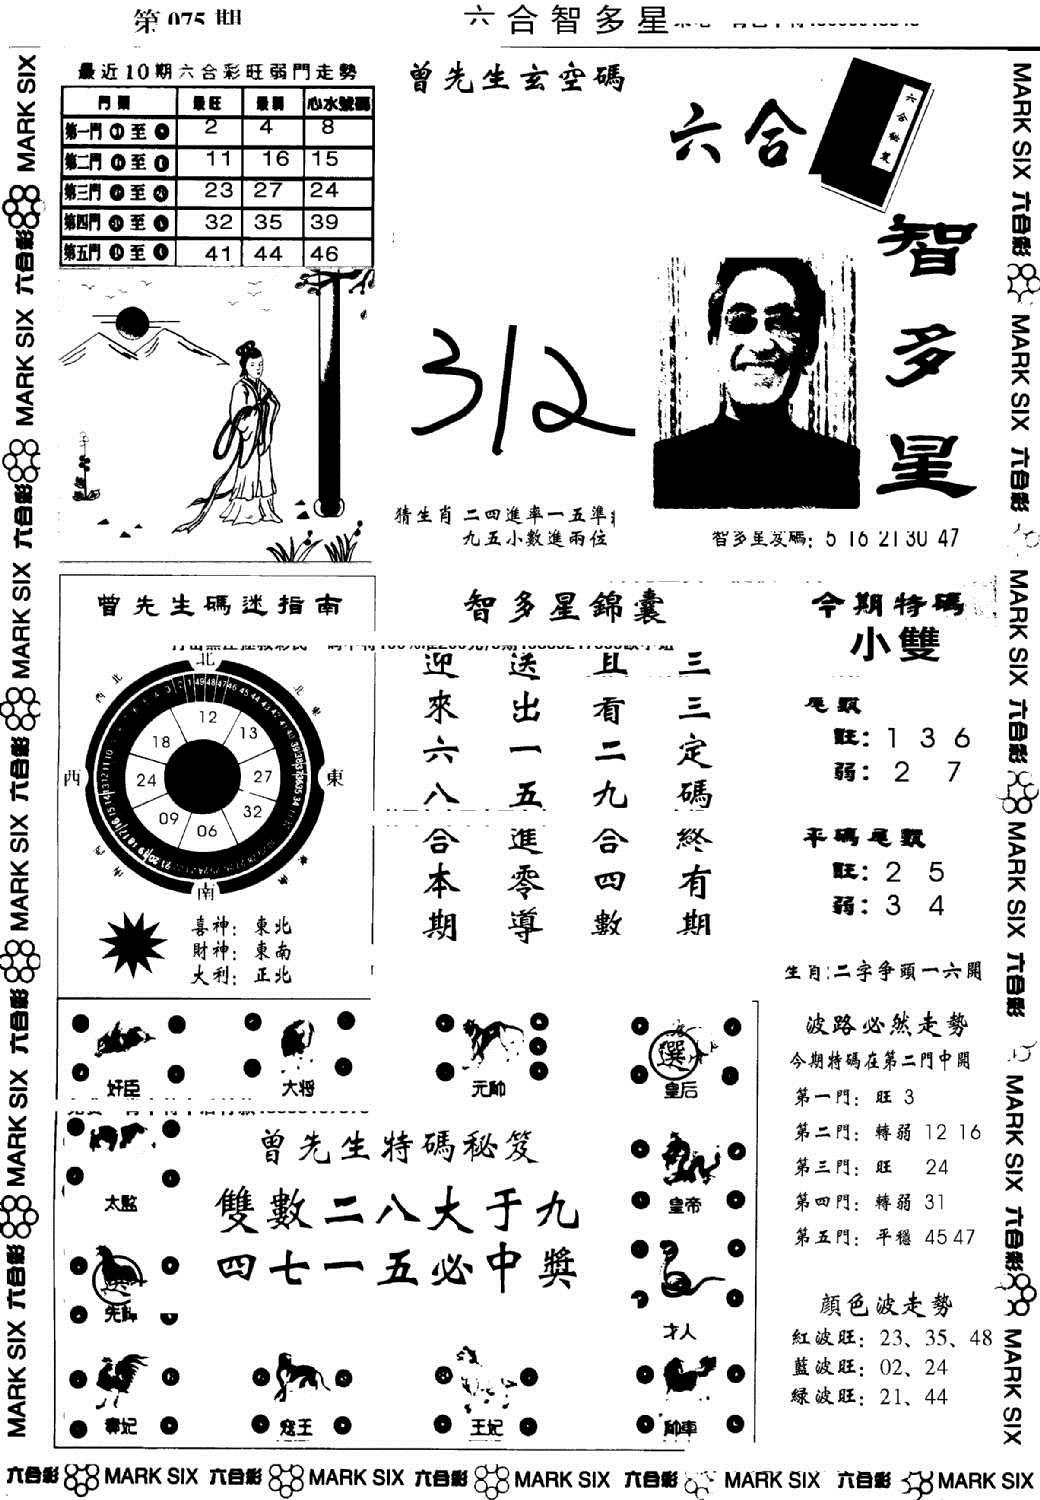 第075期
六合智多星
最近10期六合彩旺弱門走勢
門類 最旺 最弱 心水號碼
第一門 至 2 4 8
第二門 至 11 16 15
第三門 至 23 27 24
第四門 至 32 35 39
第五門 至 41 44 46
曾先生玄空碼
312
猜生肖 二四進率一五準
九五小數進兩位
六合
六合秘笈
智多星
智多星發碼: 5 16 21 30 47
曾先生碼迷指南
北
西北
東北
西
東
南
12
13
27
32
06
09
24
18
喜神: 東北
財神: 東南
大利: 正北
智多星錦囊
迎 送 且 三
來 出 看 三
六 一 二 定
八 五 九 碼
合 進 合 終
本 零 四 有
期 導 數 期
今期特碼
小雙
尾數
旺: 1 3 6
弱: 2 7
平碼尾數
旺: 2 5
弱: 3 4
生肖:二字爭頭一六開
波路必然走勢
今期特碼在第二門中開
第一門: 旺 3
第二門: 轉弱 12 16
第三門: 旺 24
第四門: 轉弱 31
第五門: 平穩 45 47
顏色波走勢
紅波旺: 23、35、48
藍波旺: 02、24
綠波旺: 21、44
奸臣
大將
元帥
選
皇后
曾先生特碼秘笈
雙數二八大于九
四七一五必中獎
太監
皇帝
選
先鋒
才人
寇王
王妃
帥車
六合彩 MARK SIX 六合彩 MARK SIX 六合彩 MARK SIX 六合彩 MARK SIX 六合彩 MARK SIX
MARK SIX 六合彩 MARK SIX 六合彩 MARK SIX 六合彩 MARK SIX 六合彩 MARK SIX 六合彩 MARK SIX
MARK SIX 六合彩 MARK SIX 六合彩 MARK SIX 六合彩 MARK SIX 六合彩 MARK SIX 六合彩 MARK SIX